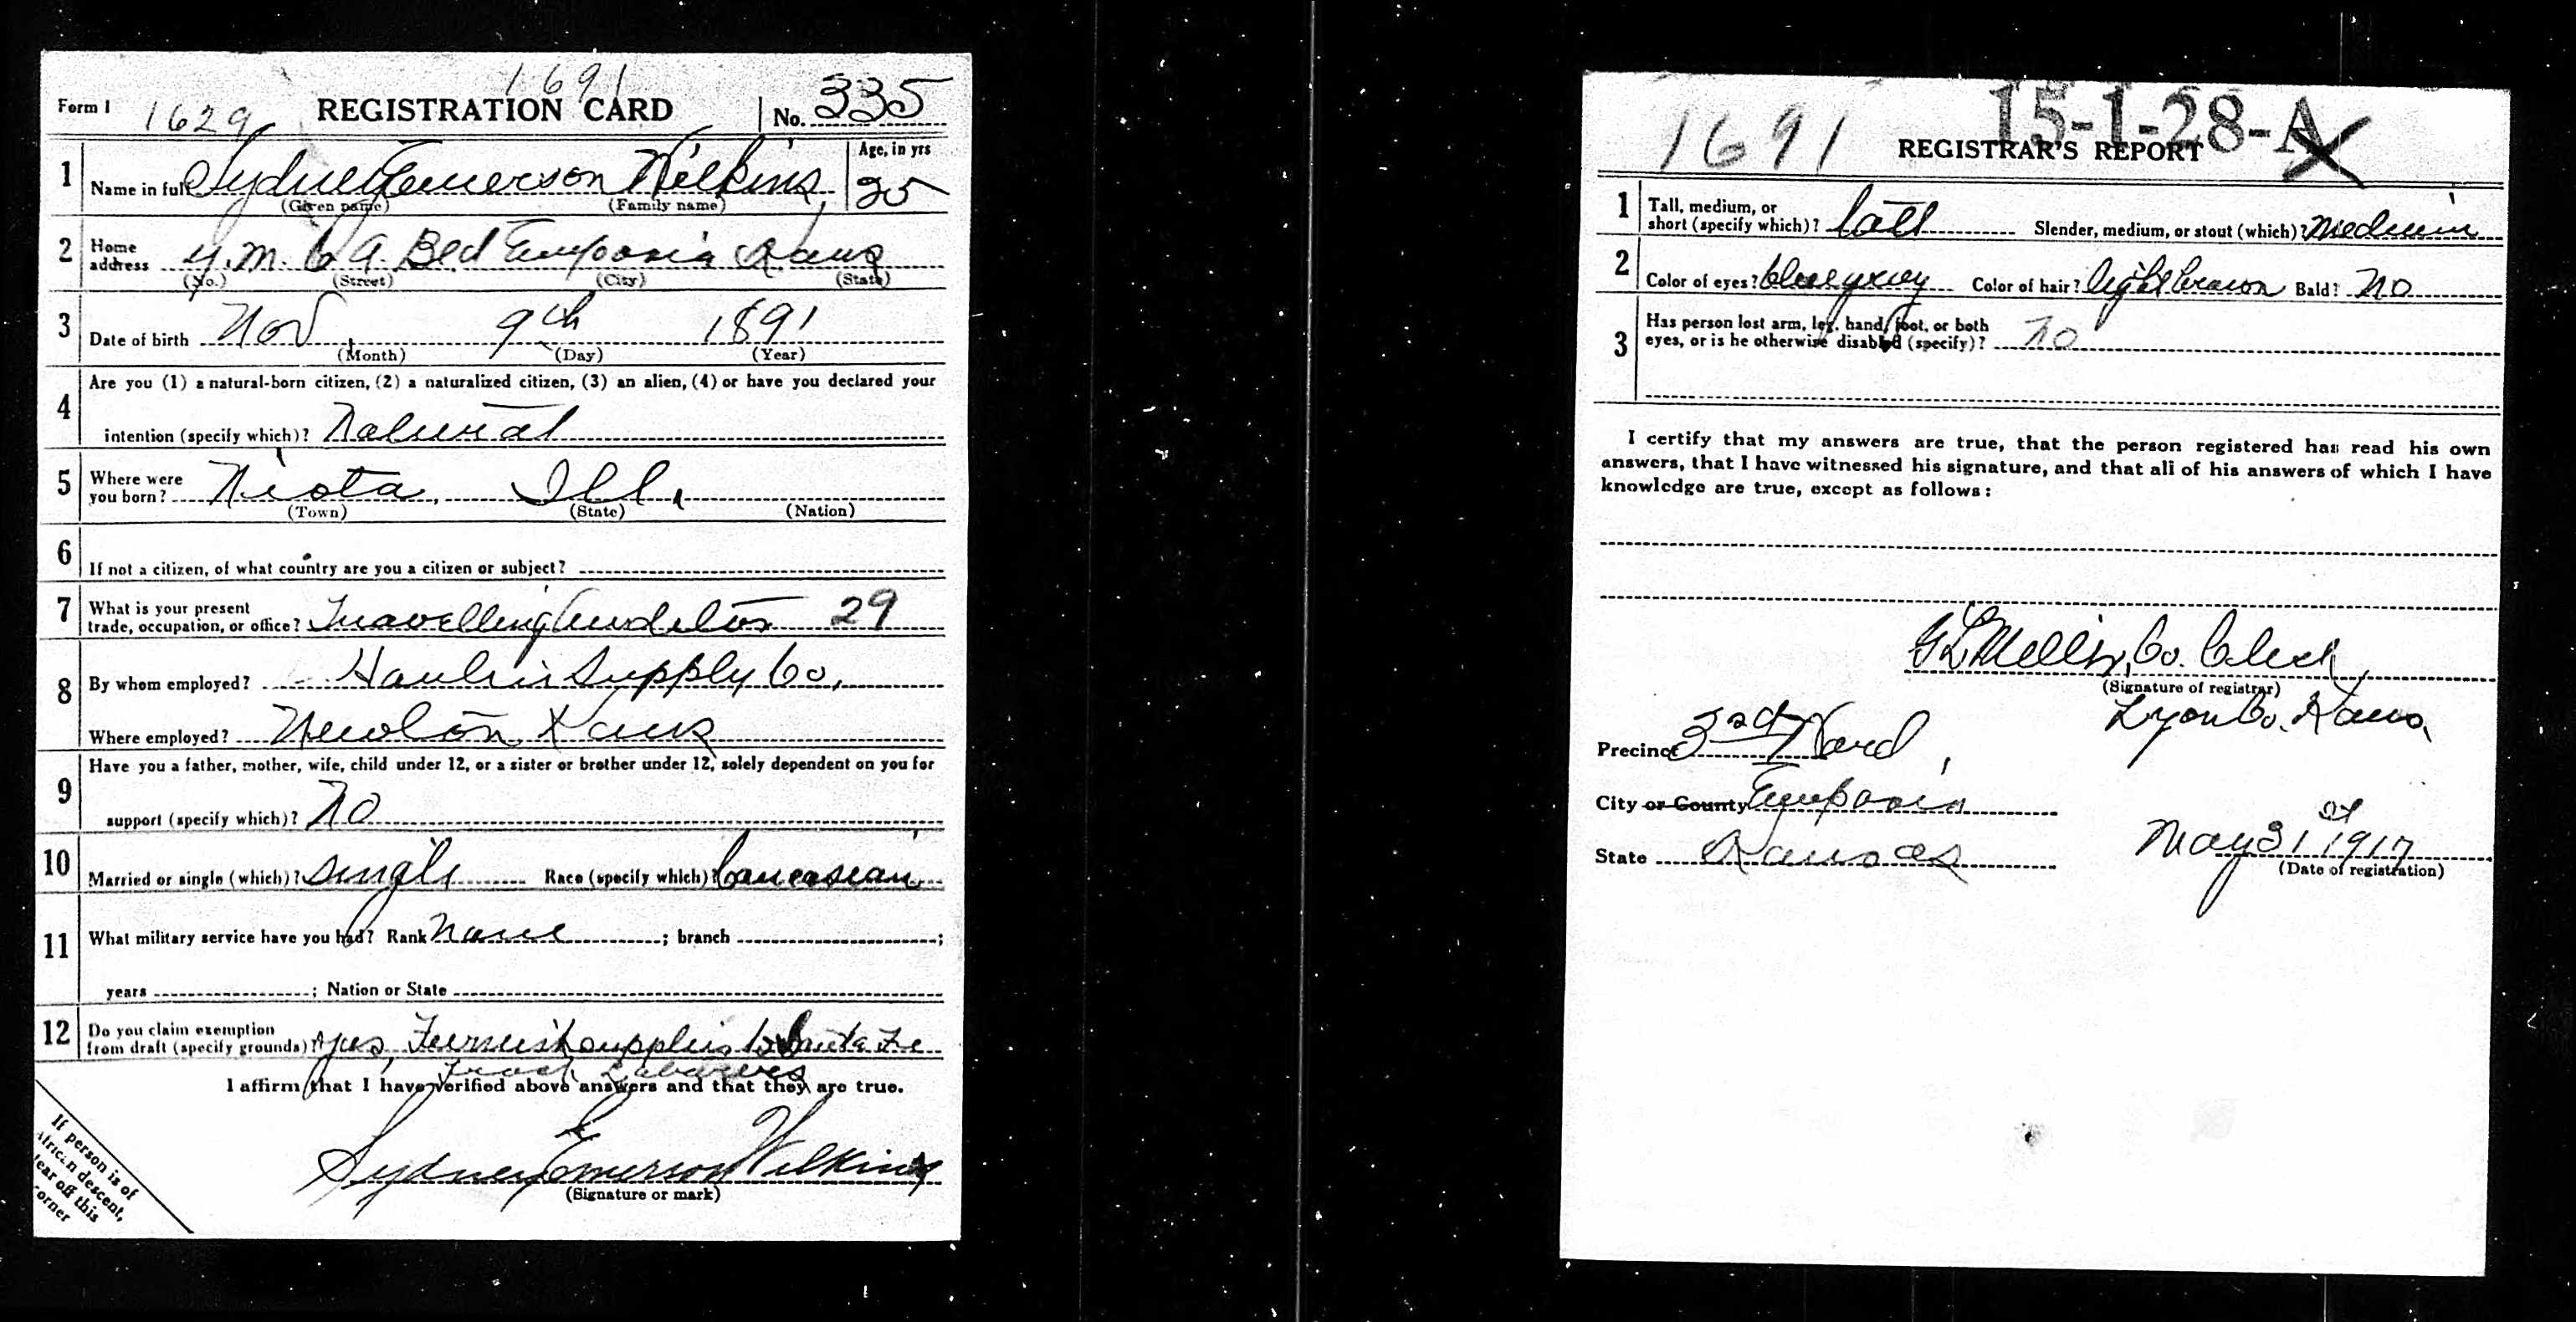 1691
Form 1 1629 REGISTRATION CARD No. 335
1 Name in full Sydney Emerson Wilkins, Age, in yrs 25
(Given name) (Family name)
2 Home address Y.M.C A. Bld Emporia Kans
(No.) (Street) (City) (State)
3 Date of birth Nov 9th 1891
(Month) (Day) (Year)
4 Are you (1) a natural-born citizen, (2) a naturalized citizen, (3) an alien, (4) or have you declared your
intention (specify which)? Natural
5 Where were you born? Niota, Ill.
(Town) (State) (Nation)
6 If not a citizen, of what country are you a citizen or subject?
7 What is your present trade, occupation, or office? Travelling Auditor 29
8 By whom employed? Supply Co.
Where employed? Newton Kans
9 Have you a father, mother, wife, child under 12, or a sister or brother under 12, solely dependent on you for
support (specify which)? No
10 Married or single (which)? single Race (specify which)? Caucasian
11 What military service have you had? Rank None; branch;
years; Nation or State
12 Do you claim exemption from draft (specify grounds)? yes, Furnish supplies to Santa Fe
Track Laborers
I affirm that I have verified above answers and that they are true.
Sydney Emerson Wilkins
(Signature or mark)
If person is of
African descent,
tear off this
corner
15-1-28-A
1691 REGISTRAR'S REPORT X
1 Tall, medium, or short (specify which)? tall Slender, medium, or stout (which)? Medium
2 Color of eyes? blue grey Color of hair? light brown Bald? No
3 Has person lost arm, leg, hand, foot, or both
eyes, or is he otherwise disabled (specify)? No
I certify that my answers are true, that the person registered has read his own
answers, that I have witnessed his signature, and that all of his answers of which I have
knowledge are true, except as follows:
G L Miller, Co. Clerk
(Signature of registrar)
Lyon Co. Kans.
Precinct 3rd Ward,
City or County Emporia
State Kansas May 31st 1917
(Date of registration)